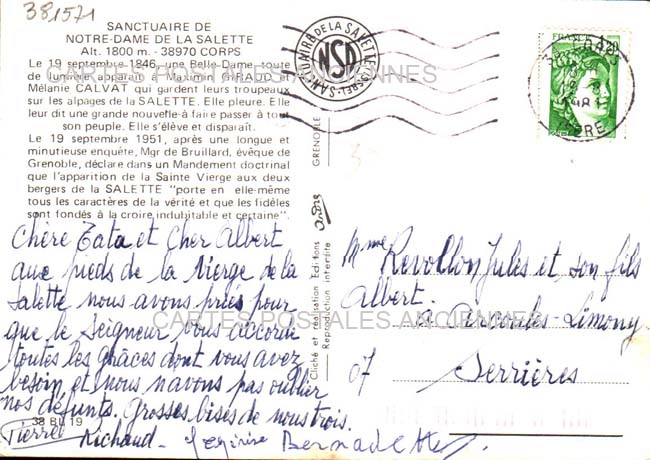 381571
SANCTUAIRE DE
NOTRE-DAME DE LA SALETTE
Alt. 1800 m. - 38970 CORPS
Le 19 septembre 1846, une Belle-Dame, toute
de lumière, apparaît à Maximin GIRAUD et
Mélanie CALVAT qui gardent leurs troupeaux
sur les alpages de la SALETTE. Elle pleure. Elle
leur dit une grande nouvelle à faire passer à tout
son peuple. Elle s'élève et disparaît.
Le 19 septembre 1951, après une longue et
minutieuse enquête, Mgr de Bruillard, évêque de
Grenoble, déclare dans un Mandement doctrinal
que l'apparition de la Sainte Vierge aux deux
bergers de la SALETTE "porte en elle-même
tous les caractères de la vérité et que les fidèles
sont fondés à la croire indubitable et certaine".
Chère Tata et Cher Albert
aux pieds de la Vierge de la
Salette nous avons priés pour
que le Seigneur vous accorde
toutes les grâces dont vous avez
besoin et nous n'avons pas oublier
nos défunts. Grosses bises de nous trois.
38 BU 19
Pierre Richaud Bernadette
NSD
GRENOBLE
Cliché et réalisation Editions
Reproduction interdite
FRANCE
Mme Revollon Jules et son fils
Albert
à Limony
07 Serrières
CARTES POSTALES ANCIENNES
CARTES POSTALES ANCIENNES